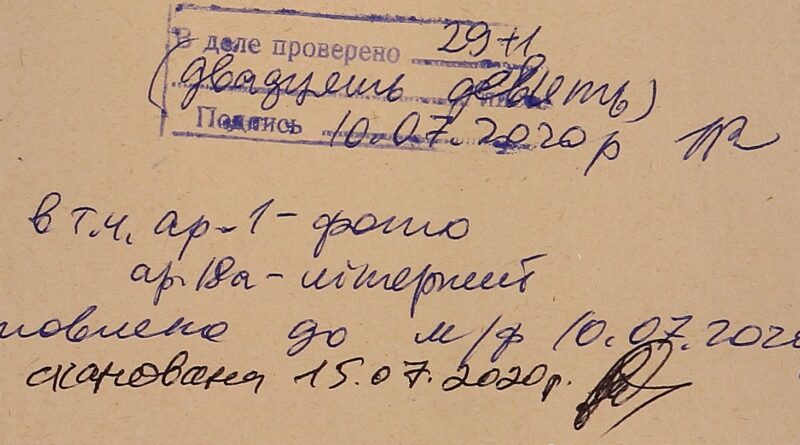 В деле проверено 29+1
(двадцять девять)
Подпись 10.07.2020р
в т.ч. ар. 1 - фото
ар. 18а - літерний
товлена до м/ф 10.07.2020
сканована 15.07.2020р.